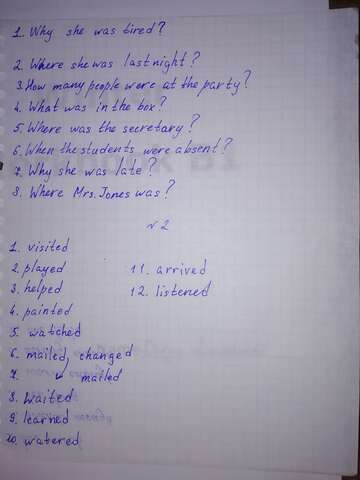 1. Why she was tired?
2. Where she was last night?
3. How many people were at the party?
4. What was in the box?
5. Where was the secretary?
6. When the students were absent?
7. Why she was late?
8. Where Mrs. Jones was?
№2
1. visited
2. played 11. arrived
3. helped 12. listened
4. painted
5. watched
6. mailed, changed
7. mailed
8. waited
9. learned
10. watered